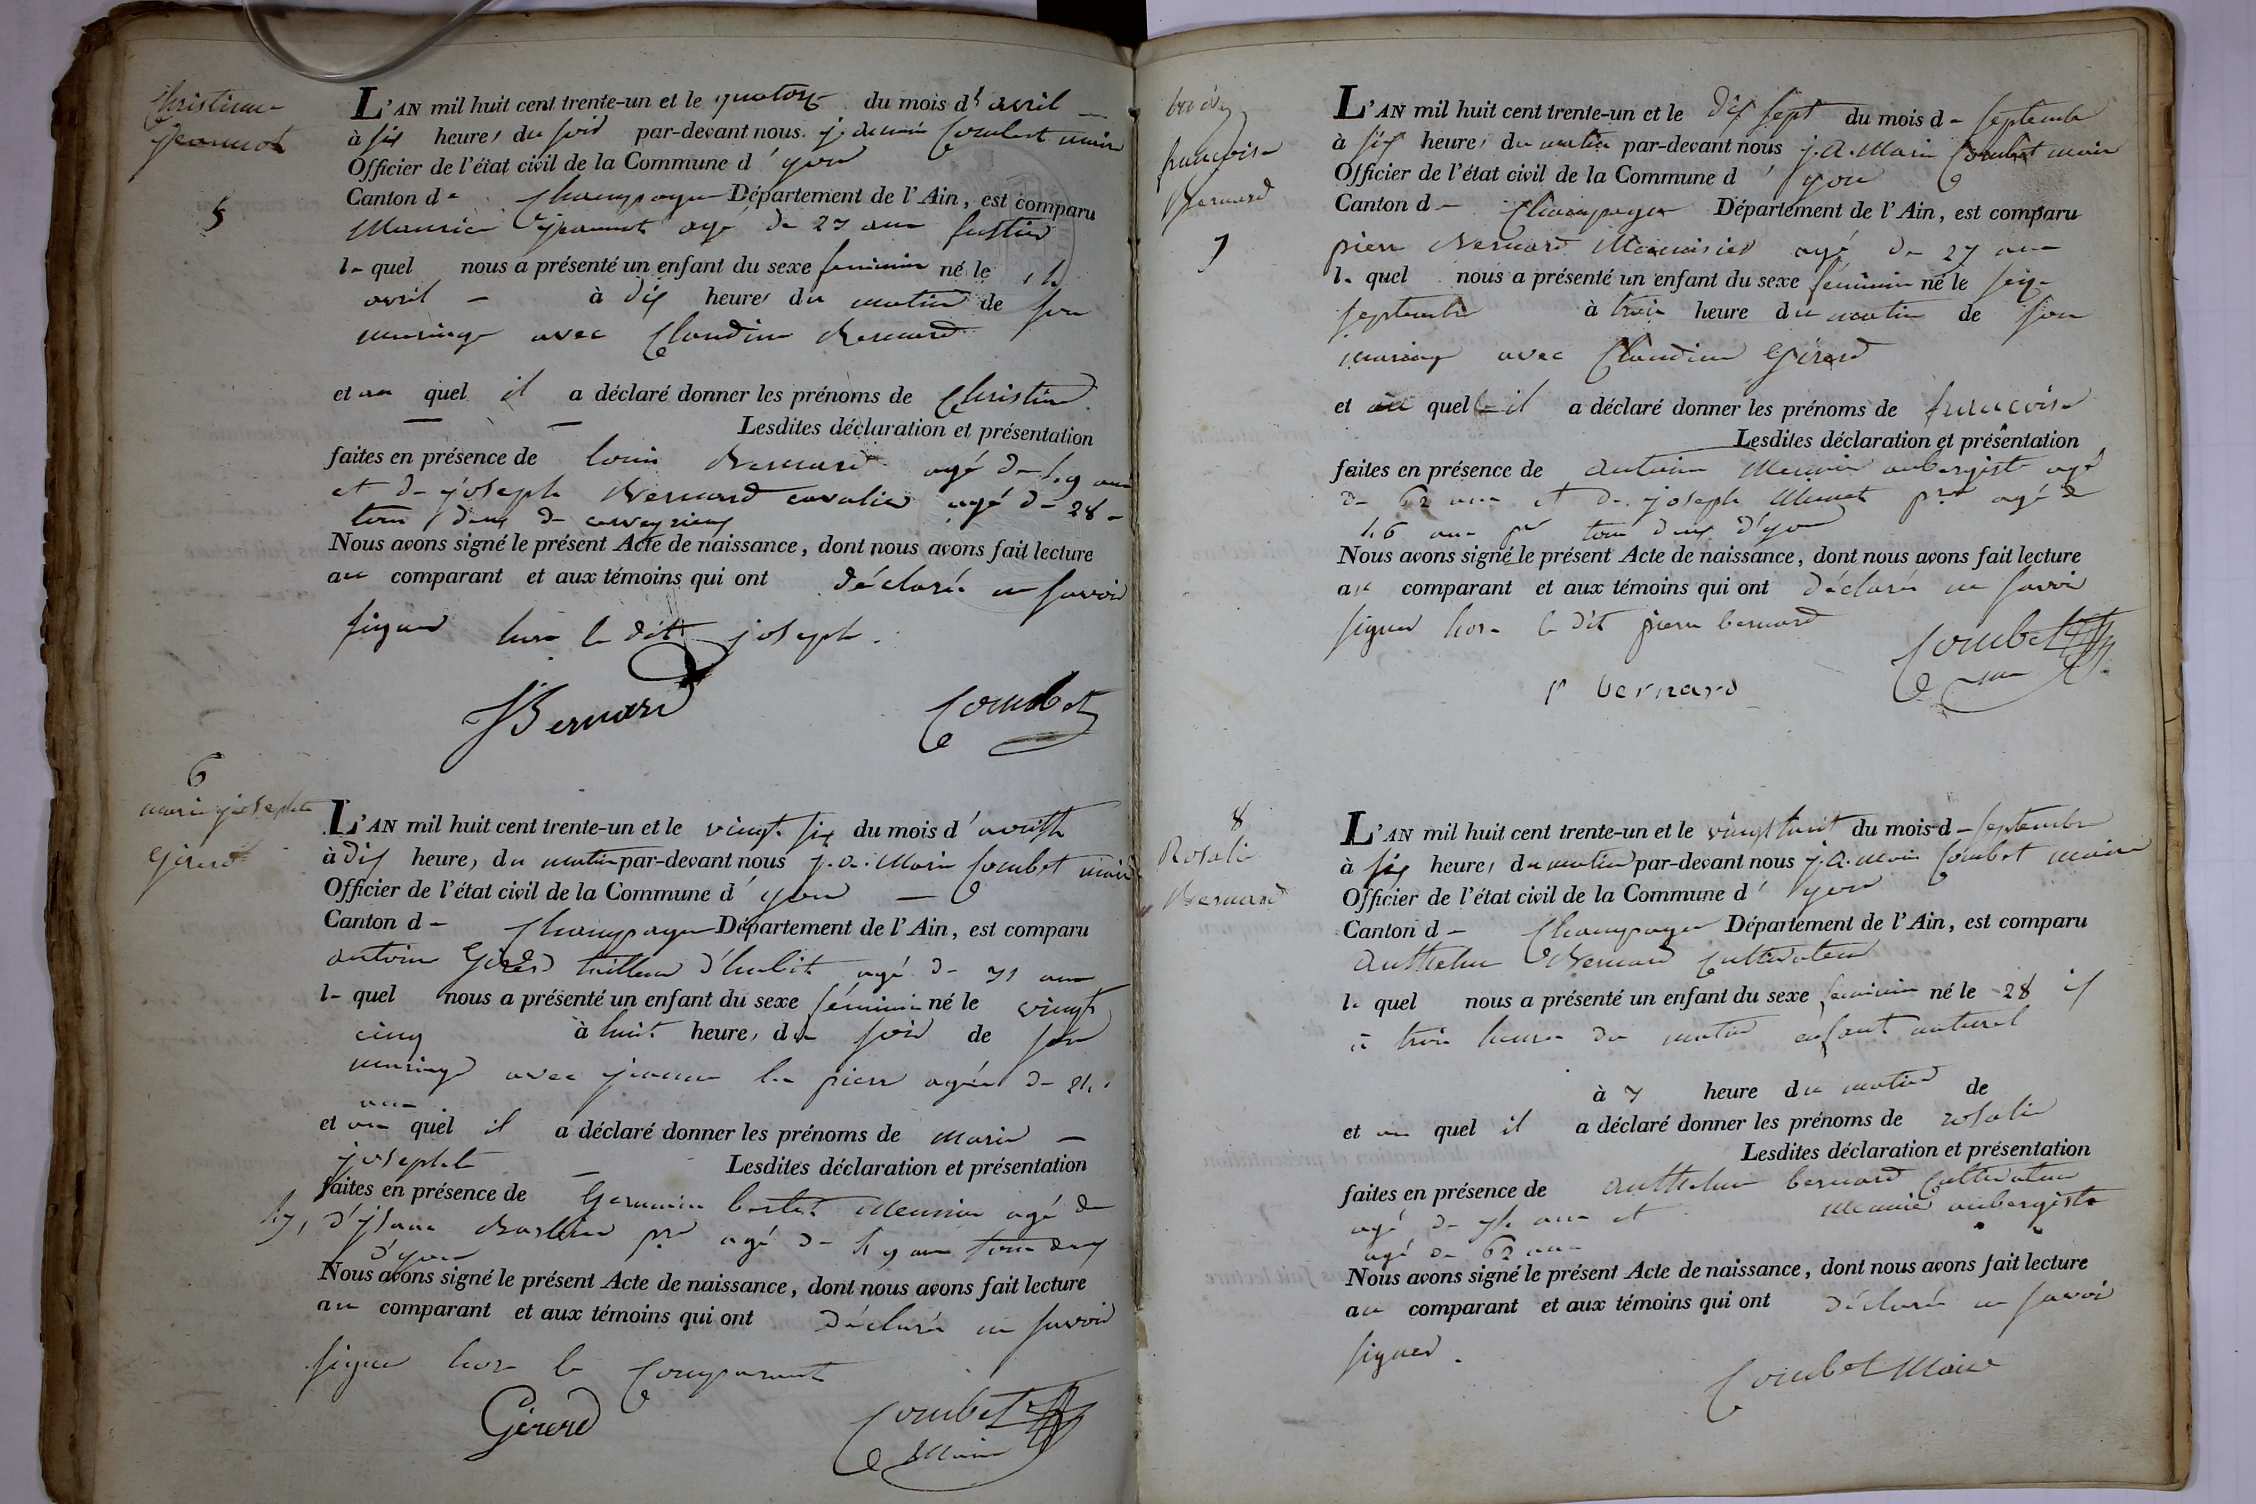 Christine
Jeannot
5
L'AN mil huit cent trente-un et le quatorze du mois d'avril
à six heures du soir par-devant nous Combet maire
Officier de l'état civil de la Commune d'yon
Canton de Champagne Département de l'Ain, est comparu
Maurice Jeannot agé de 27 ans
le quel nous a présenté un enfant du sexe feminin né le 14
avril à dix heures du matin de son
mariage avec Claudine Bernard
et au quel il a déclaré donner les prénoms de Christine
Lesdites déclaration et présentation
faites en présence de louis Bernard agé de 49 ans
et de joseph Bernard cavalier agé de 28
tous deux de
Nous avons signé le présent Acte de naissance, dont nous avons fait lecture
au comparant et aux témoins qui ont déclaré ne savoir
signer hors le dit joseph.
JBernard Combet
6
marie josephte
Gérard
L'AN mil huit cent trente-un et le vingt six du mois d'
à dix heures du matin par-devant nous j. a. Marin Combet maire
Officier de l'état civil de la Commune d'yon
Canton de Champagne Département de l'Ain, est comparu
antoine Gérard tailleur d'habit agé de 31 ans
le quel nous a présenté un enfant du sexe féminin né le vingt
cinq à huit heures du soir de son
mariage avec jeanne la pierre agée de 24
ans
et au quel il a déclaré donner les prénoms de marie
josephte Lesdites déclaration et présentation
faites en présence de Germain meunier agé de
47, agé de 49 ans tous deux
d'yon
Nous avons signé le présent Acte de naissance, dont nous avons fait lecture
au comparant et aux témoins qui ont déclaré ne savoir
signer hors le Comparant
Gérard Combet
Maire
françoise
Bernard
7
L'AN mil huit cent trente-un et le dix sept du mois de septembre
à six heures du matin par-devant nous j. a. Marin Combet maire
Officier de l'état civil de la Commune d'yon
Canton de Champagne Département de l'Ain, est comparu
pierre Bernard Menuisier agé de 27 ans
le quel nous a présenté un enfant du sexe féminin né le seize
septembre à trois heure du matin de son
mariage avec Claudine Gérard
et au quel il a déclaré donner les prénoms de françoise
Lesdites déclaration et présentation
faites en présence de antoine aubergiste agé
de 62 ans et de joseph pre agé de
46 ans tous deux d'yon
Nous avons signé le présent Acte de naissance, dont nous avons fait lecture
au comparant et aux témoins qui ont déclaré ne savoir
signer hors le dit pierre bernard
Combet
p bernard
8
Rosalie
Bernard
L'AN mil huit cent trente-un et le vingt huit du mois de septembre
à six heures du matin par-devant nous j. a. Marin Combet maire
Officier de l'état civil de la Commune d'yon
Canton de Champagne Département de l'Ain, est comparu
Anthelme Bernard Cultivateur
le quel nous a présenté un enfant du sexe feminin né le 28
à trois heures du matin enfant naturel
à 7 heure du matin de
et au quel il a déclaré donner les prénoms de rosalie
Lesdites déclaration et présentation
faites en présence de Anthelme bernard Cultivateur
agé de ans et aubergiste
agé de 62 ans
Nous avons signé le présent Acte de naissance, dont nous avons fait lecture
au comparant et aux témoins qui ont déclaré ne savoir
signer.
Combet Maire